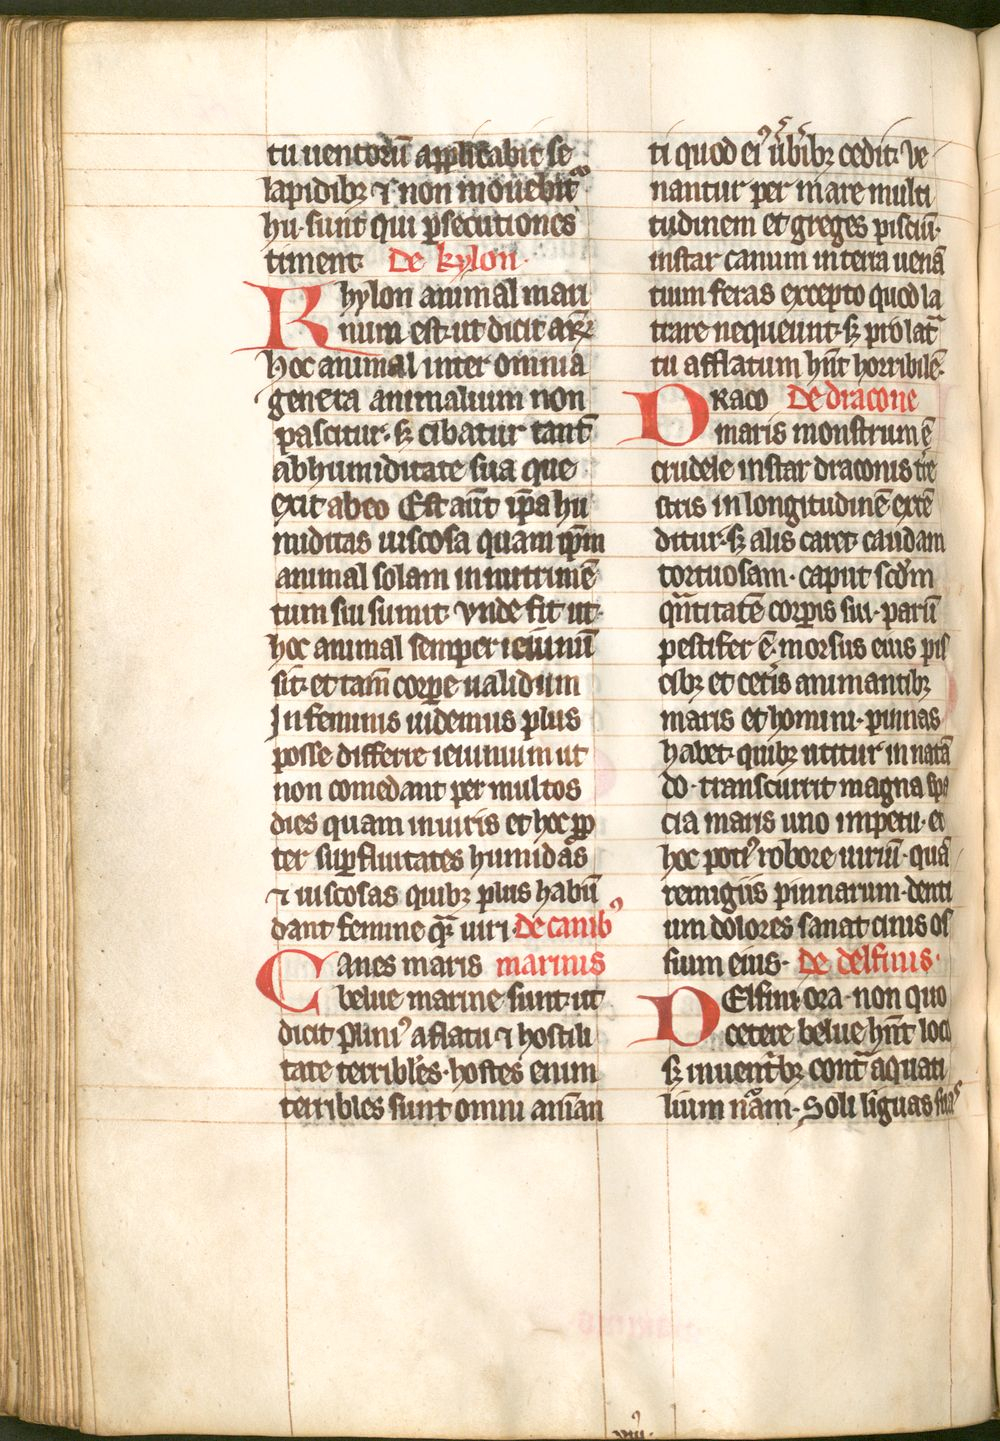 tu uentorū applicabit se
lapidibꝫ ⁊ non mouebitᷣ
hu·sunt qui ꝑsecutiones
timent· De kylon·
Rhylon animal mari
num est·ut dicit arꝫ
hoc animal inter omnia
genera animalium non
pascitur·sꝫ cibatur tantū
ab humiditate sua que
exit ab eo Est aūt ip̄a hu
miditas uiscosa quam ip̄m
animal solam in nutrimē
tum sui sumit· vnde fit ut·
hoc animal semper ieiunū
sit·et tam̄ corꝑe ualidum
In feminis uidemus plus
posse differre ieiunium ut
non comedant per multos
dies quam in uiris et hoc ꝓp
ter suꝑfluitates humidas
⁊ uiscosas quibꝫ plus habū
dant femine qᷓ uiri· De canibꝰ
Canes maris marinis
belue marine sunt·ut
dicit pliniꝰ aflatu ⁊ hostili
tate terribiles·hostes enim
terribles sunt omni anīan
ti quod eiꝰ ūbibꝫ cedit· Ve
nantur per mare multi
tudinem et greges pisciū·
instar canum in terra uenā
tium feras excepto quod la
trare nequeunt·sꝫ pro lat̄
tu afflatum hn̄t horribilē·
DRaco De dracone
maris monstrum ē
crudele instar draconis t̄re
stris in longitudinē extē
ditur·sꝫ alis caret· caudam
tortuosam·caput scd̄m
qn̄titatē corꝑis sui·paruū
pestifer ē·morsus eius pis
cibꝫ et cetis animantibꝫ
maris et homini·pinnas
habet·quibꝫ utitur in natā
do·transcurrit magna spa
cia maris uno impetu·et
hoc potiꝰ robore uiriū·quā
remigiis pinnarum·denti
um dolores sanat cinis os
sium eius· De delfinis·
DElfini ora·non quo
cetere belue hn̄t loco
sꝫ in uentbꝫ cont̄ aquati
lium nām·Soli liguas suas
viiiꝰ·